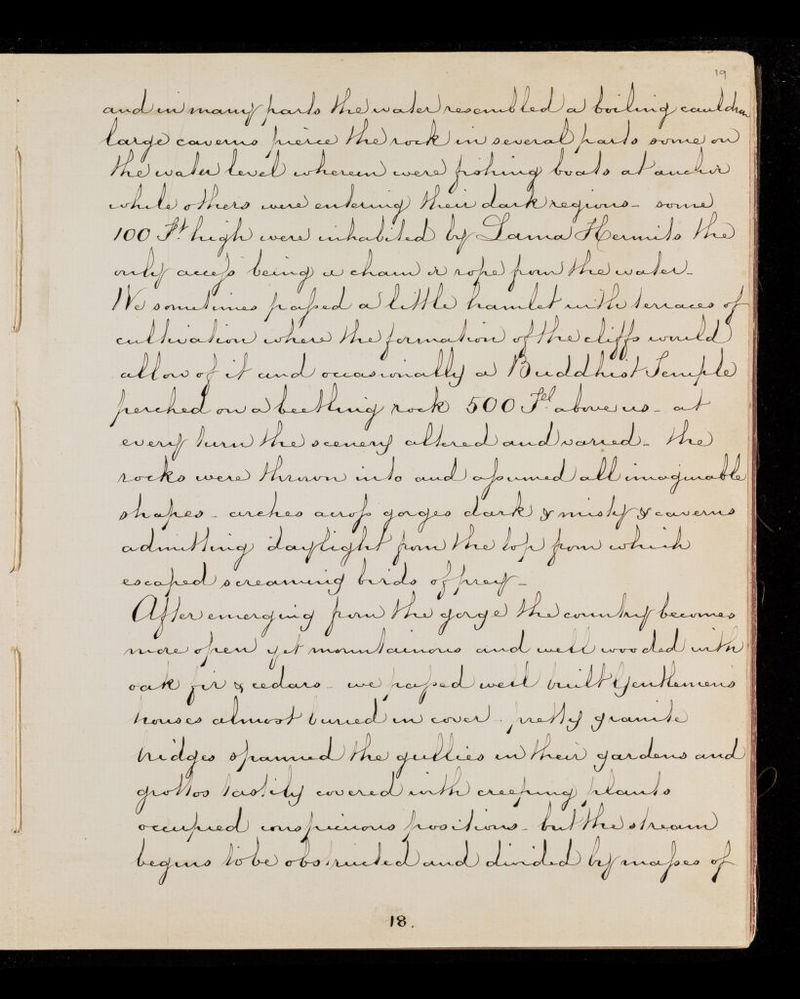 19
and in many parts the water resembled a boiling cauldron
large caverns pierce the rock in several parts some on
the water level wherein were fishing boats at anchor
while others were entering their dark regions - some
100 Ft high were inhabited by Lama Hermits the
only access being a chain or rope from the water -
We sometimes passed a little hamlet with terraces of
cultivation where the formation of the cliffs would
allow of it and occasionally a Buddhist Temple
perched on a beetling rock 500 Feet above us - at
every turn the scenery altered and varied - the
rocks were thrown into and assumed all imaginable
shapes - arches across gorges dark & misty & caverns
admitting daylight from the top from which
escaped screaming birds of prey -
After emerging from the gorge the country becomes
more open yet mountainous and well wooded with
oak fir & cedars - we passed well built Gentlemens
houses almost buried in cover - pretty granite
bridges spanned the gullies in their gardens and
grottos tastily covered with creeping plants
occupied conspicuous positions - but the stream
begins to be obstructed and divided by masses of
18.